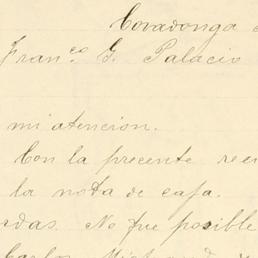 Covadonga
Fran.co G. Palacio
mi atencion.
Con la precente reci
la nota de caja.
das. No fue posible
Carlos